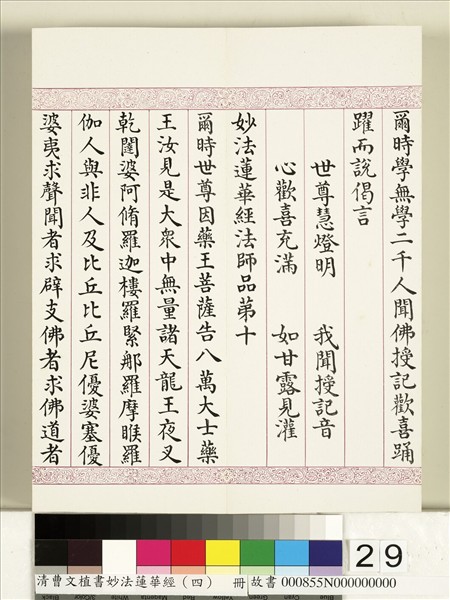 爾時學無學二千人聞佛授記歡喜踊
躍而說偈言
世尊慧燈明 我聞授記音
心歡喜充滿 如甘露見灌
妙法蓮華經法師品第十
爾時世尊因藥王菩薩告八萬大士藥
王汝見是大眾中無量諸天龍王夜叉
乾闥婆阿脩羅迦樓羅緊那羅摩睺羅
伽人與非人及比丘比丘尼優婆塞優
婆夷求聲聞者求辟支佛者求佛道者
29
清曹文植書妙法蓮華經（四） 冊 故書 000855N000000000